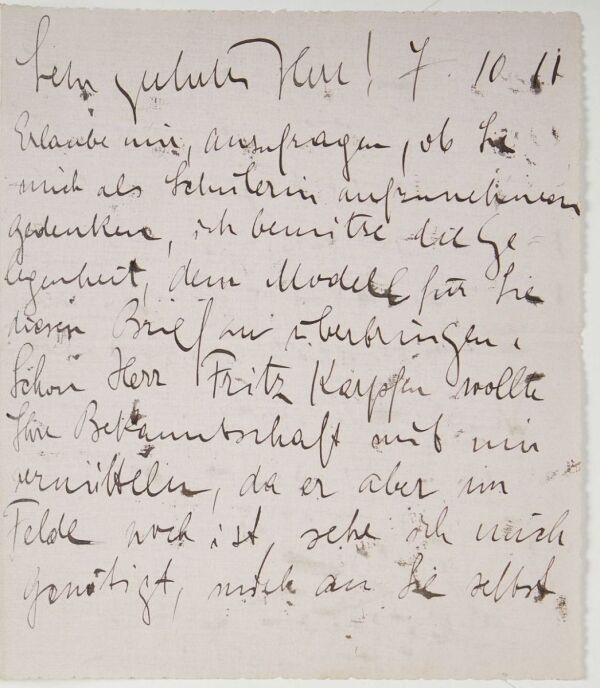 Sehr geehrter Herr! 7. 10. 11
Erlaube mir, anzufragen, ob Sie
mich als Schülerin aufzunehmen
gedenken, ich benütze die Ge-
legenheit, dem Modell für Sie
diesen Brief zu überbringen.
Schon Herr Fritz Karpfen wollte
Ihre Bekanntschaft mit mir
vermitteln, da er aber im
Felde noch ist, sehe ich mich
genötigt, mich an Sie selbst